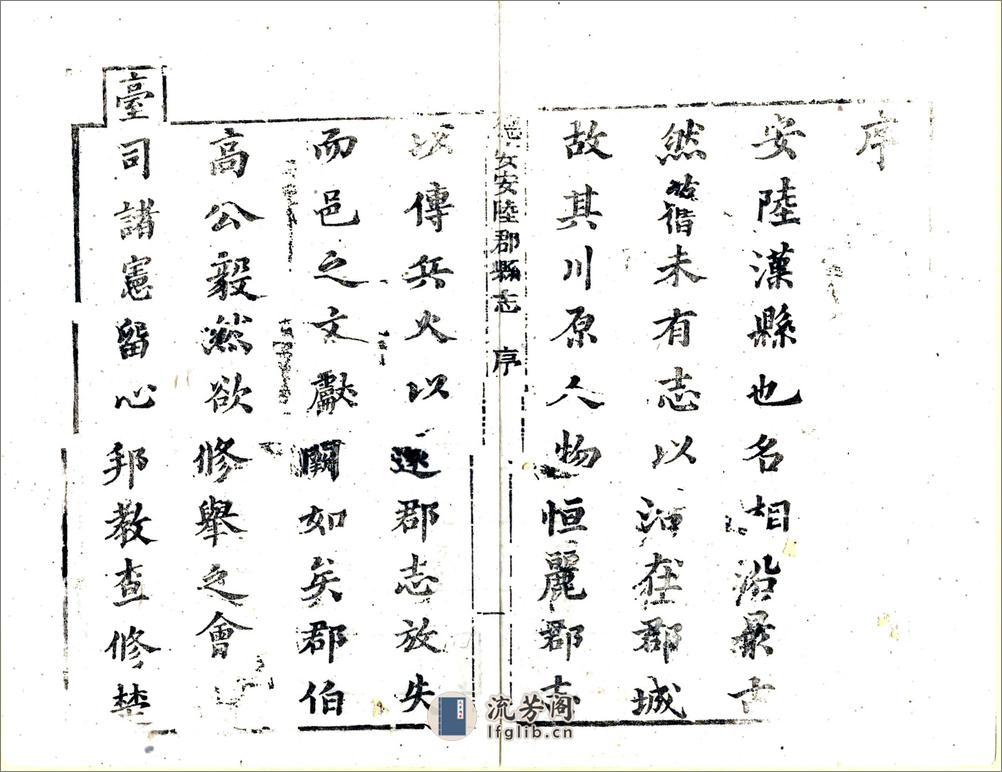 序
安陸漢縣也名相沿最古
然皆未有志以在郡城
故其川原人物恒麗郡志
安陸郡縣志 序
以傳兵火以逐郡志放失
而邑之文獻闕如矣郡伯
高公毅然欲修舉之會
臺司諸憲留心邦教查修楚
流芳阁
lfglib.cn